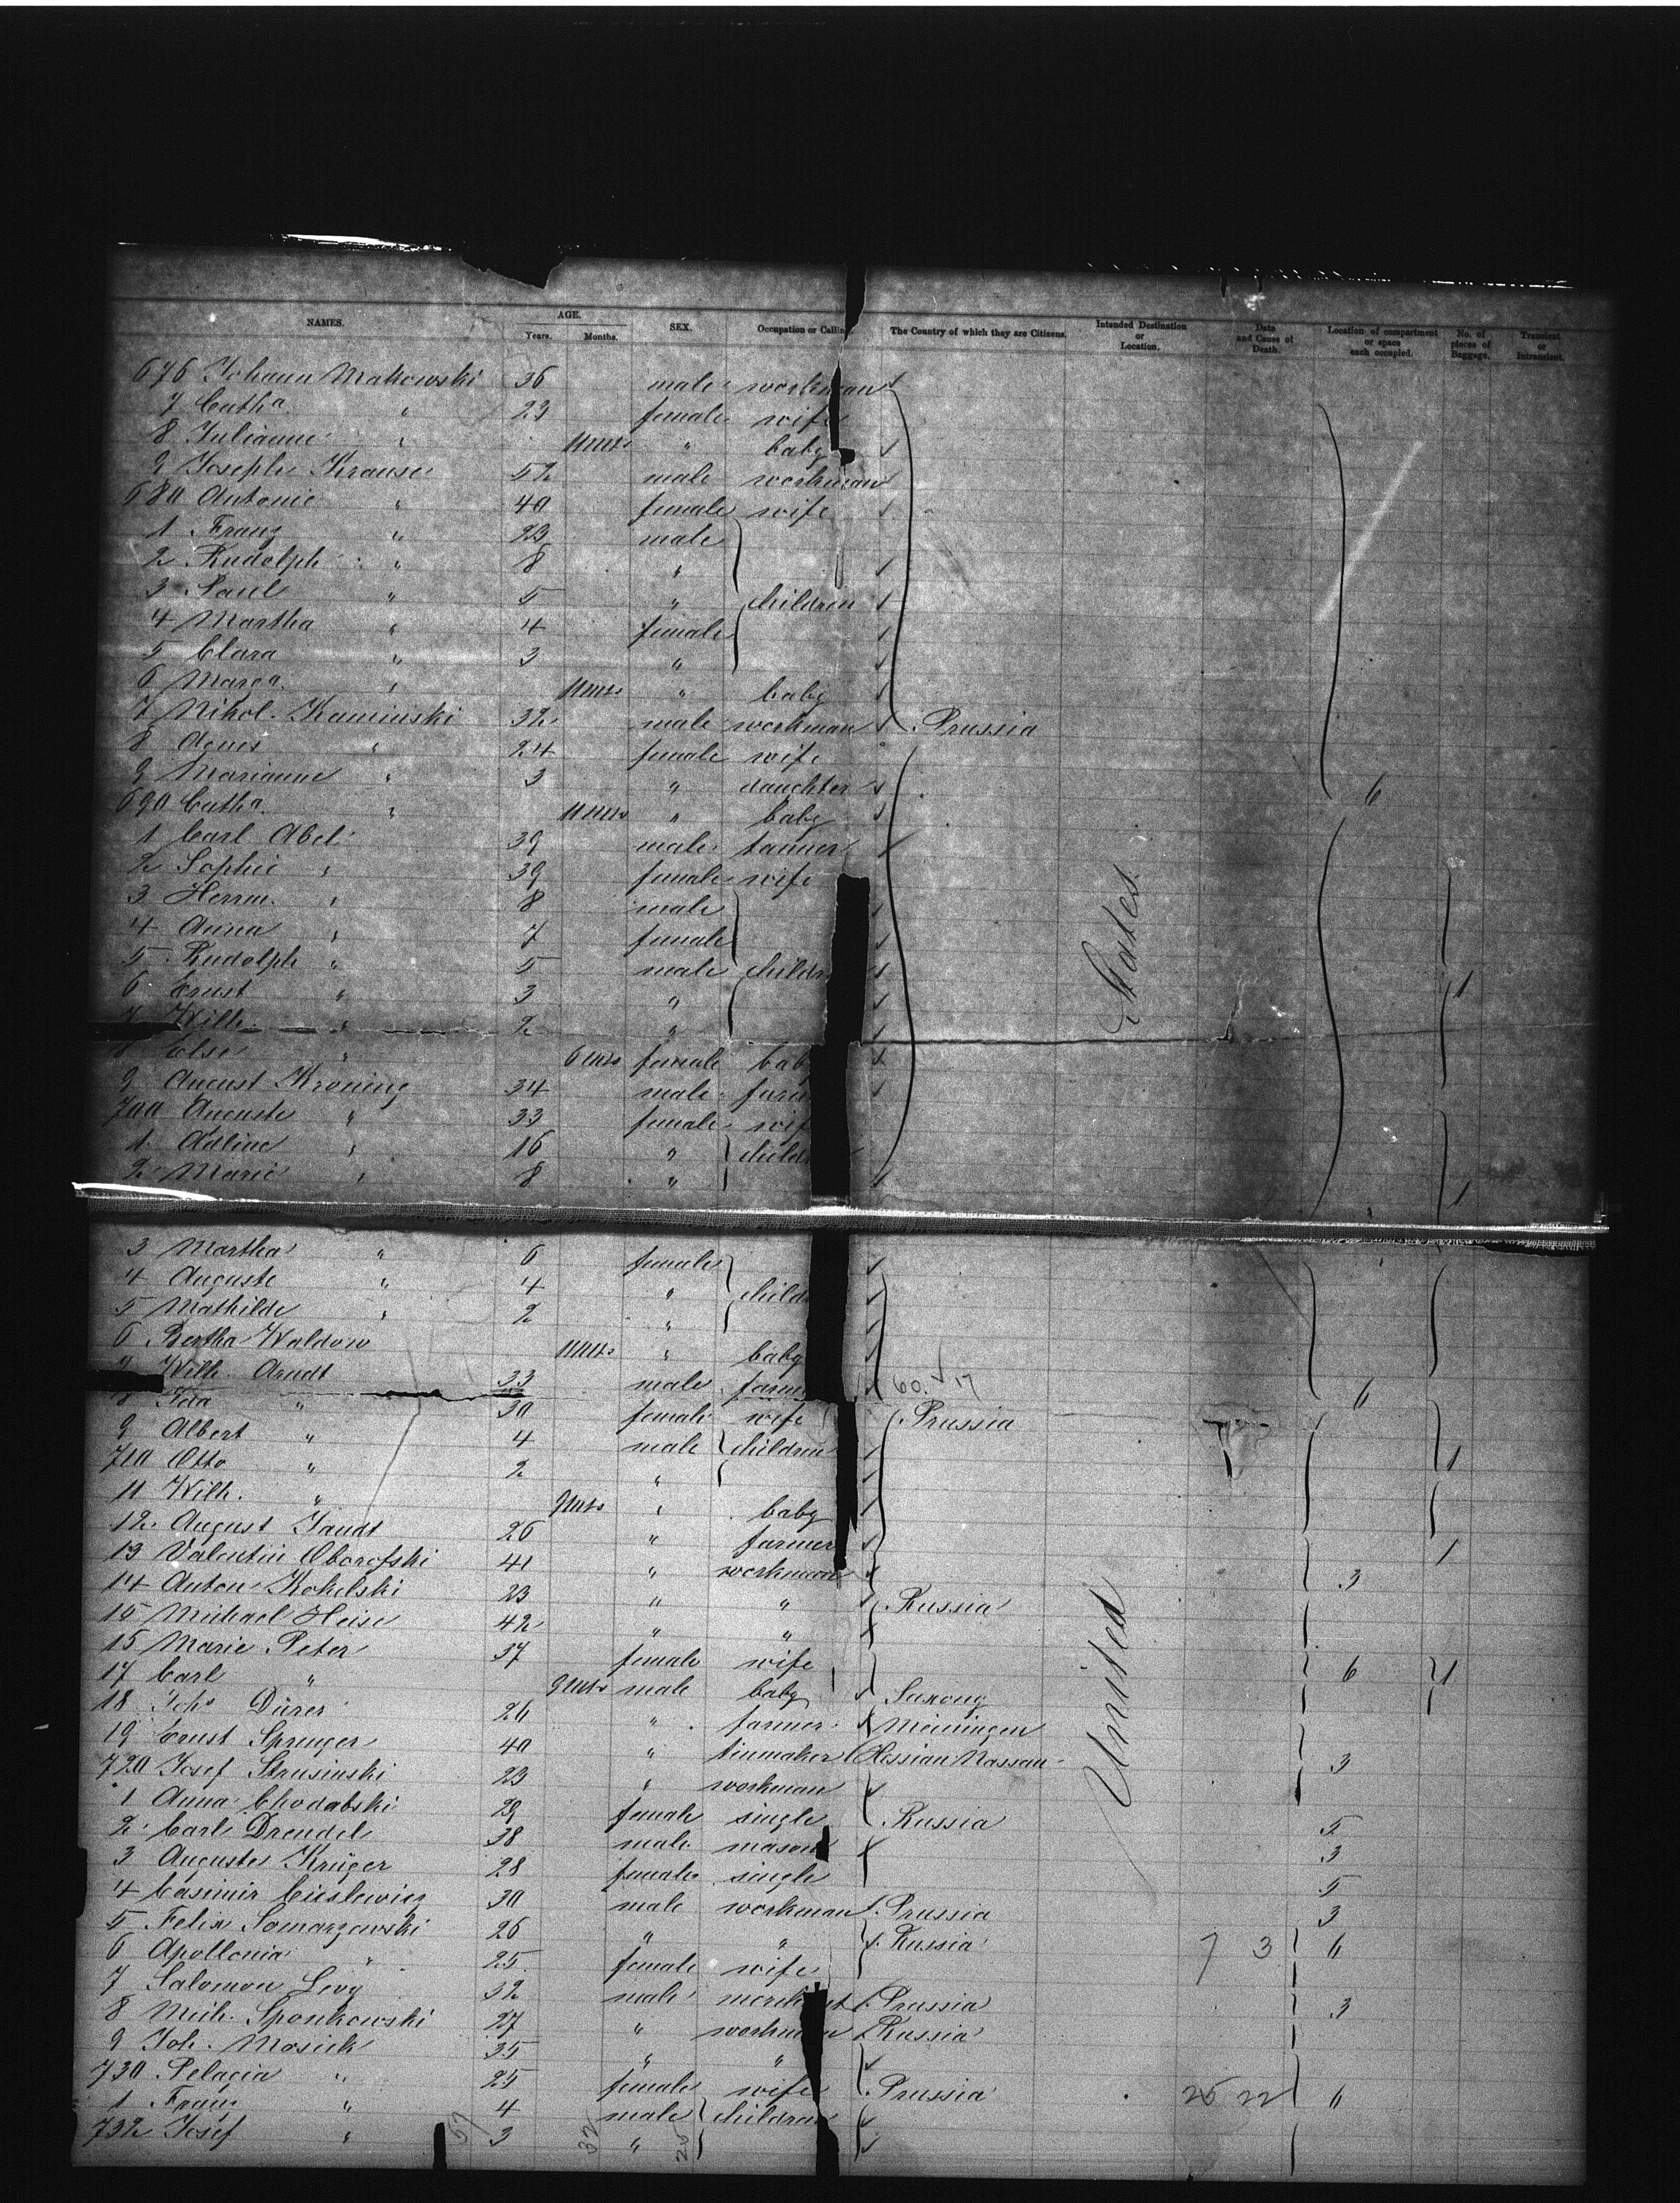 NAMES. AGE. Years. Months. SEX. Occupation or Calling. The Country of which they are Citizens. Intended Destination or Location. Date and Cause of Death. Location of compartment or space each occupied. No. of pieces of Baggage. Transient or Intransient.
676 Johann Makowski 36 male workman
7 Catha. " 23 female wife
8 Julianne " 11 mts " baby
9 Joseph Krause 52 male workman
680 Antonie " 40 female wife
1 Franz " 23 male
2 Rudolph " 8 "
3 Paul " 5 " children
4 Martha " 4 female
5 Clara " 3 "
6 Marga. " 11 mts " baby
7 Nikol. Kaminski 32 male workman Prussia
8 Agnes " 24 female wife
9 Marianne " 3 " daughter 6
690 Catha. " 11 mts " baby
1 Carl Abel 39 male tanner
2 Sophie " 39 female wife
3 Herm. " 8 male
4 Anna " 7 female
5 Rudolph " 5 male childr
6 Ernst " 3 " 1
7 Wilh. " 2 "
8 Else " 6 mts female bab
9 August Kroning 34 male farm
700 Auguste " 33 female wif
1 Adline " 16 " child
2 Marie " 8 " 1
States.
3 Martha " 6 female
4 Auguste " 4 " child
5 Mathilde " 2 "
6 Bertha Waldow 11 mts " baby
7 Wilh. Arndt 33 male farme 60. 17 6
8 Ida " 30 female wife Prussia
9 Albert " 4 male children 1
710 Otto " 2 "
11 Wilh. " 9 mts " baby
12 August Jandt 26 " farmer 1
13 Valentin Oborofski 41 " workman 3
14 Anton Kokelski 23 " " Russia
15 Michael Heise 42 " "
15 Marie Peter 37 female wife 6 1
17 Carl " 9 mts male baby Saxony
18 Johs Dürer 26 " farmer Meiningen
19 Ernst Sprenger 40 " tinmaker Hessian Nassau 3
720 Josef Strusinski 23 " workman
1 Anna Chodabski 29 female single Russia 5
2 Carl Drendel 38 male mason 3
3 Auguste Krüger 28 female single 5
4 Casimir Cieslewicz 30 male workman Prussia 3
5 Felix Samarzewski 26 " " Russia 7 3 6
6 Apollonia " 25 female wife
7 Salomon Levy 32 male merchant Prussia 3
8 Mich. Sponkowski 27 " workman Russia
9 Joh. Mosick 35 " "
730 Pelagia " 25 female wife Prussia 25 22 6
1 Franz " 4 male children
732 Josef " 3 "
57 32 25
United